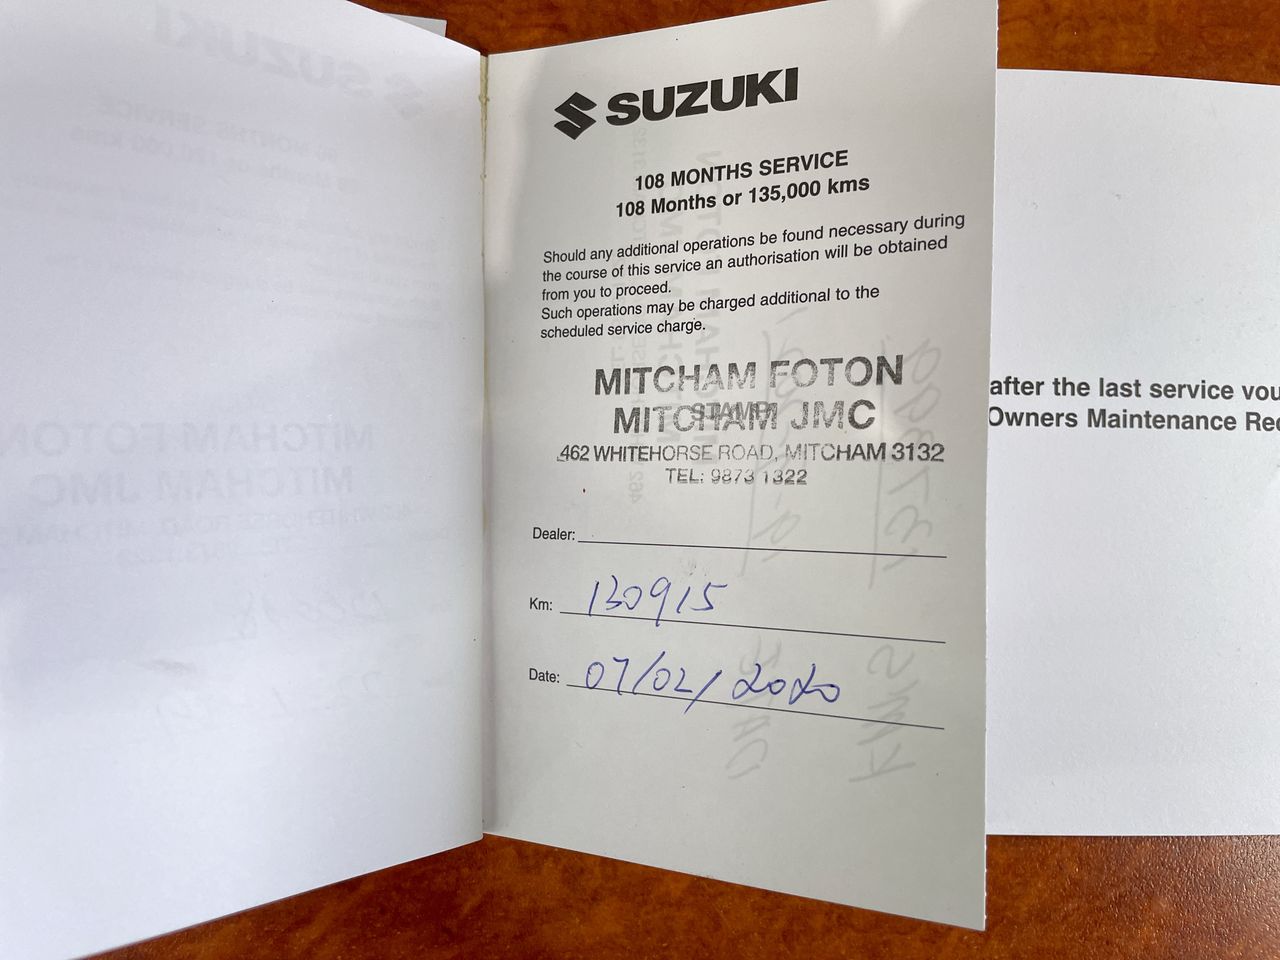 SUZUKI
108 MONTHS SERVICE
108 Months or 135,000 kms
Should any additional operations be found necessary during
the course of this service an authorisation will be obtained
from you to proceed.
Such operations may be charged additional to the
scheduled service charge.
MITCHAM FOTON
STAMP
MITCHAM JMC
462 WHITEHORSE ROAD, MITCHAM 3132
TEL: 9873 1322
Dealer:
Km: 130915
Date: 07/02/2020
after the last service
Owners Maintenance